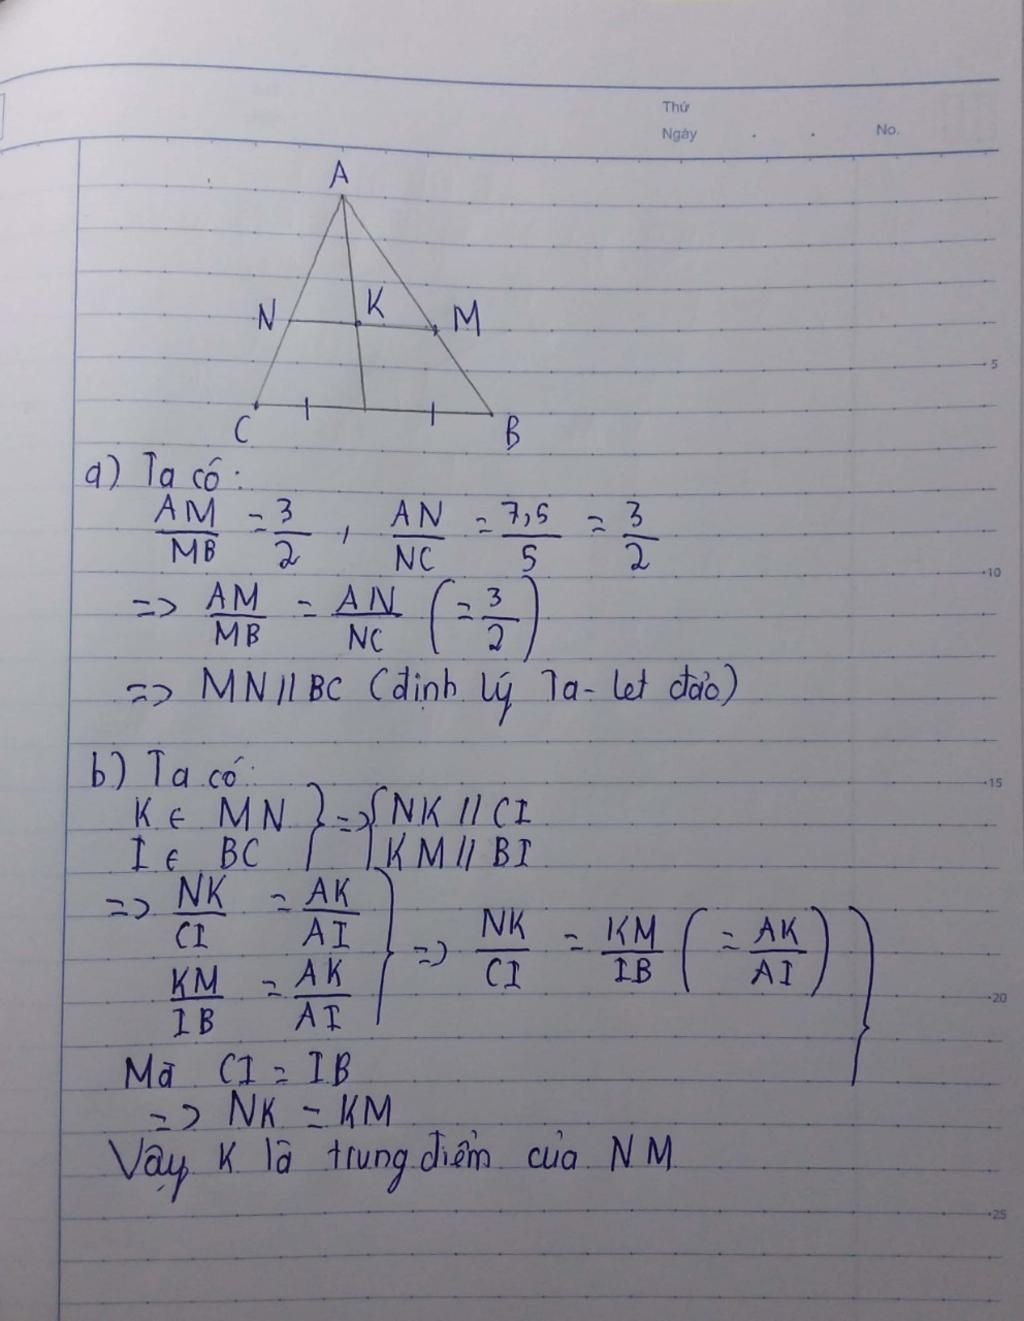 Thứ
Ngày . . No.
A
N K M
C B
5
a) Ta có:
AM/MB = 3/2 , AN/NC = 7,5/5 = 3/2
10
=> AM/MB = AN/NC (= 3/2)
=> MN // BC (định lý Ta-let đảo)
b) Ta có:
15
K ∈ MN } => { NK // CI
I ∈ BC } { KM // BI
=> NK/CI = AK/AI } => NK/CI = KM/IB (= AK/AI) }
KM/IB = AK/AI
20
Mà CI = IB
=> NK = KM
Vậy K là trung điểm của NM
25